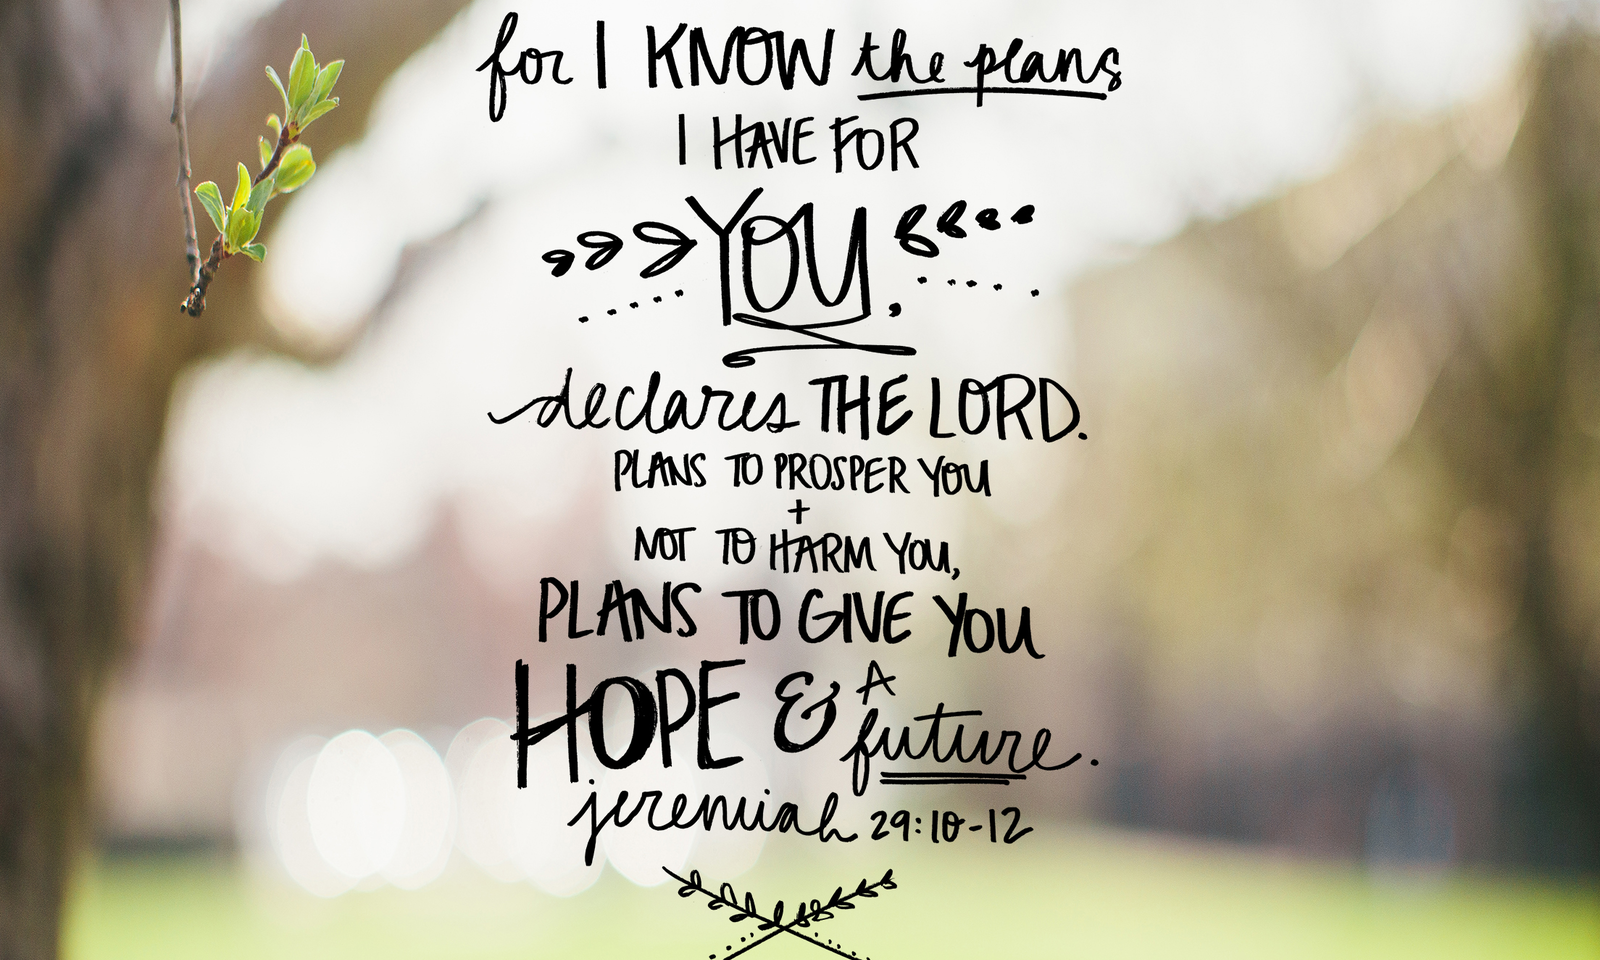 for I KNOW the plans
I HAVE FOR
YOU,
declares THE LORD.
PLANS TO PROSPER YOU
+
NOT TO HARM YOU,
PLANS TO GIVE YOU
HOPE & A
future.
jeremiah 29:10-12